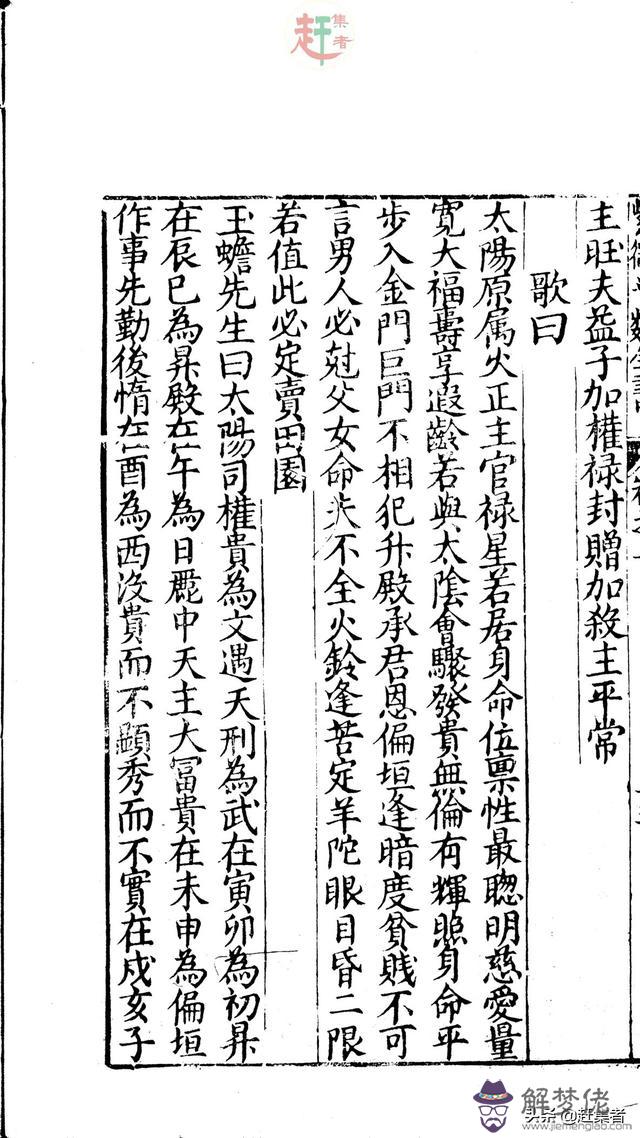 主旺夫益子加權禄封贈加殺主平常
歌曰
太陽原属火正主官禄星若居身命位禀性最聰明慈愛量
寛大福壽享遐齡若與太陰會驟發貴無倫有輝照身命平
步入金門巨門不相犯升殿承君恩偏垣逢暗度貧賤不可
言男人必尅父女命夫不全火鈴逢苦定羊陀眼目昏二限
若值此必定賣田園
玉蟾先生曰太陽司權貴為文遇天刑為武在寅卯為初昇
在辰巳為昇殿在午為日麗中天主大冨貴在未申為偏垣
作事先勤後惰在酉為西没貴而不顯秀而不實在戍亥子
赶集者
解梦佬
www.jiemenglao.com
头条@赶集者